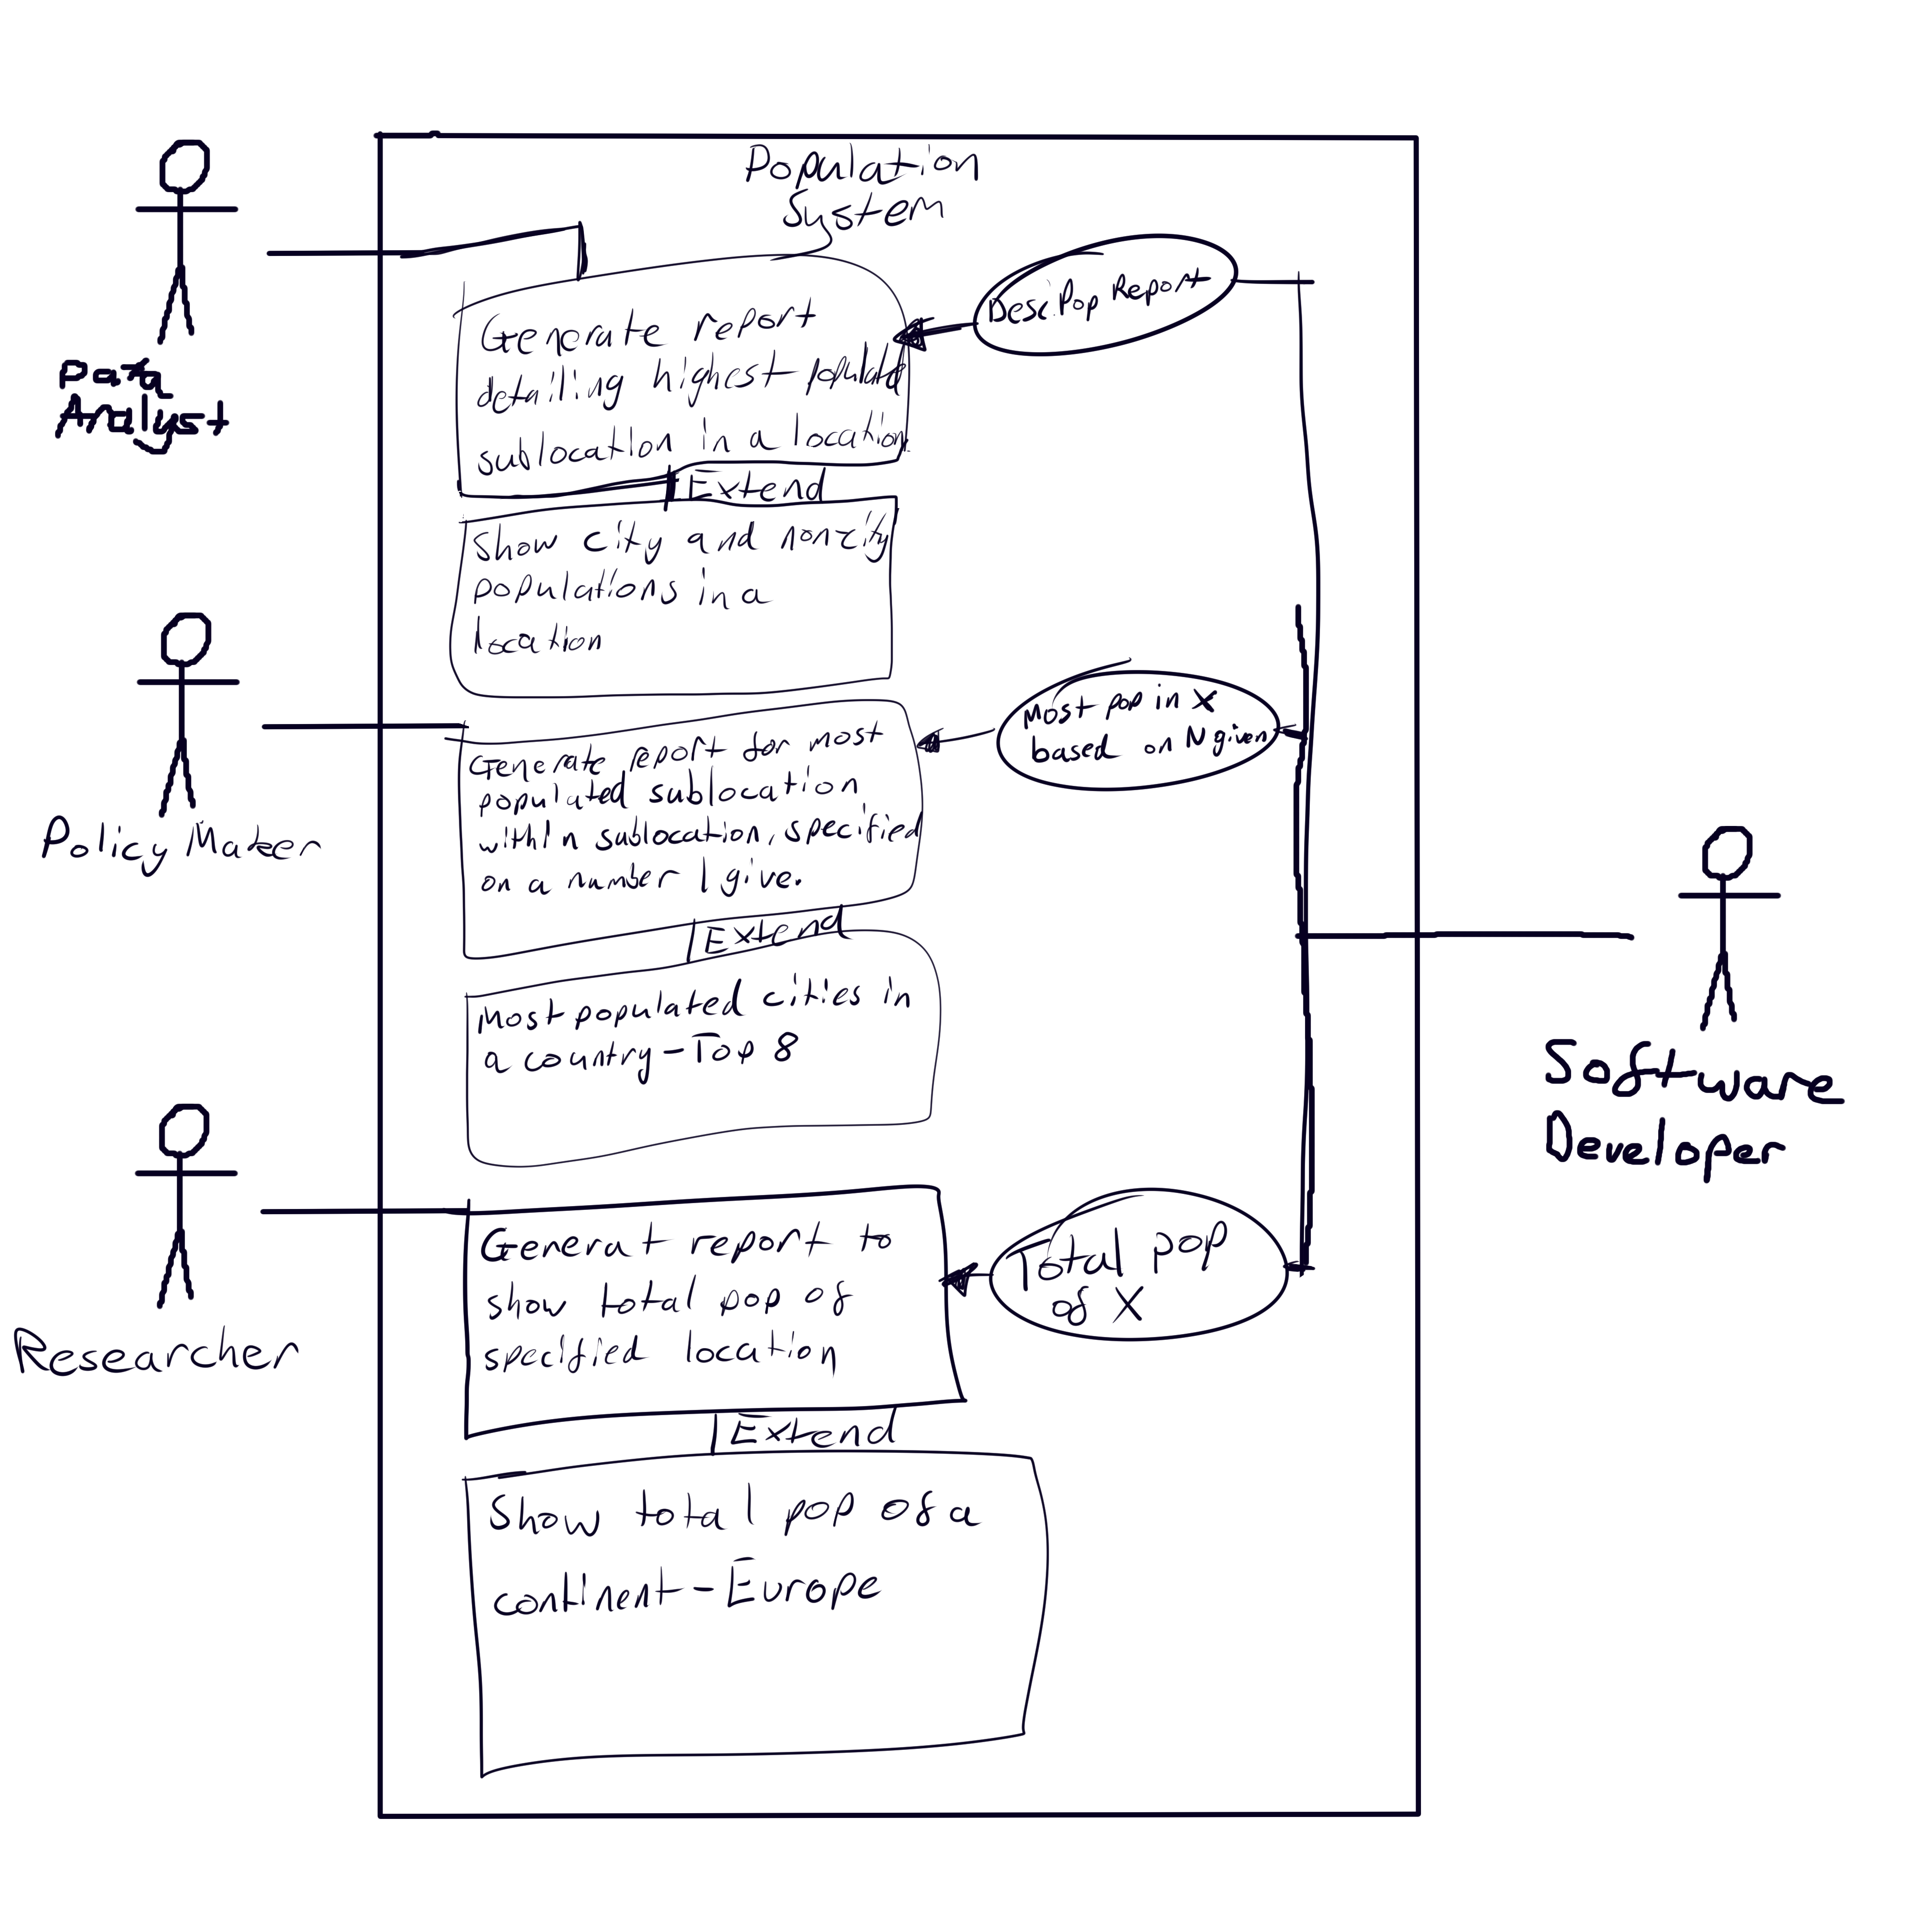 Population
System
Data
Analyst
Generate report
detailing highest populated
sublocation in a location
Desc. Pop Report
Extend
Show city and noncity
populations in a
location
Policy Maker
Generate report for most
populated sublocation
within sublocation, specified
on a number I give.
Most pop in X
based on N given
Extend
Most populated cities in
a country-Top 8
Software
Developer
Researcher
Generat report to
show total pop of
specified location
Total pop
of X
Extend
Show total pop of a
continent-Europe